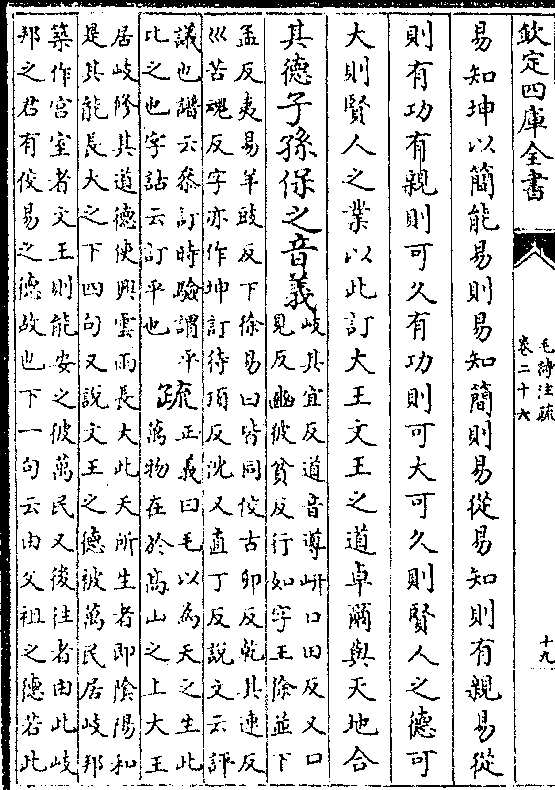 欽定四庫全書
毛詩注疏
卷二十六
十九
易知坤以簡能易則易知簡則易從易知則有親易從
則有功有親則可久有功則可大可久則賢人之德可
大則賢人之業以此訂大王文王之道卓爾與天地合
其德子孫保之音義
岐其宜反道音導岍口田反又口
見反豳彼貧反行如字王徐並下
孟反夷易羊豉反下徐易曰皆同佼古卯反乾其連反
巛苦魂反字亦作坤訂待頂反沈又直丁反說文云評
議也譜云參訂時驗謂平
比之也字詁云訂平也
疏
正義曰毛以為天之生此
萬物在於高山之上大王
居岐脩其道德使興雲雨長大此天所生者即陰陽和
是其能長大之下四句又說文王之德被萬民居岐邦
築作宮室者文王則能安之彼萬民又後往者由此岐
邦之君有佼易之德故也下一句云由父祖之德若此